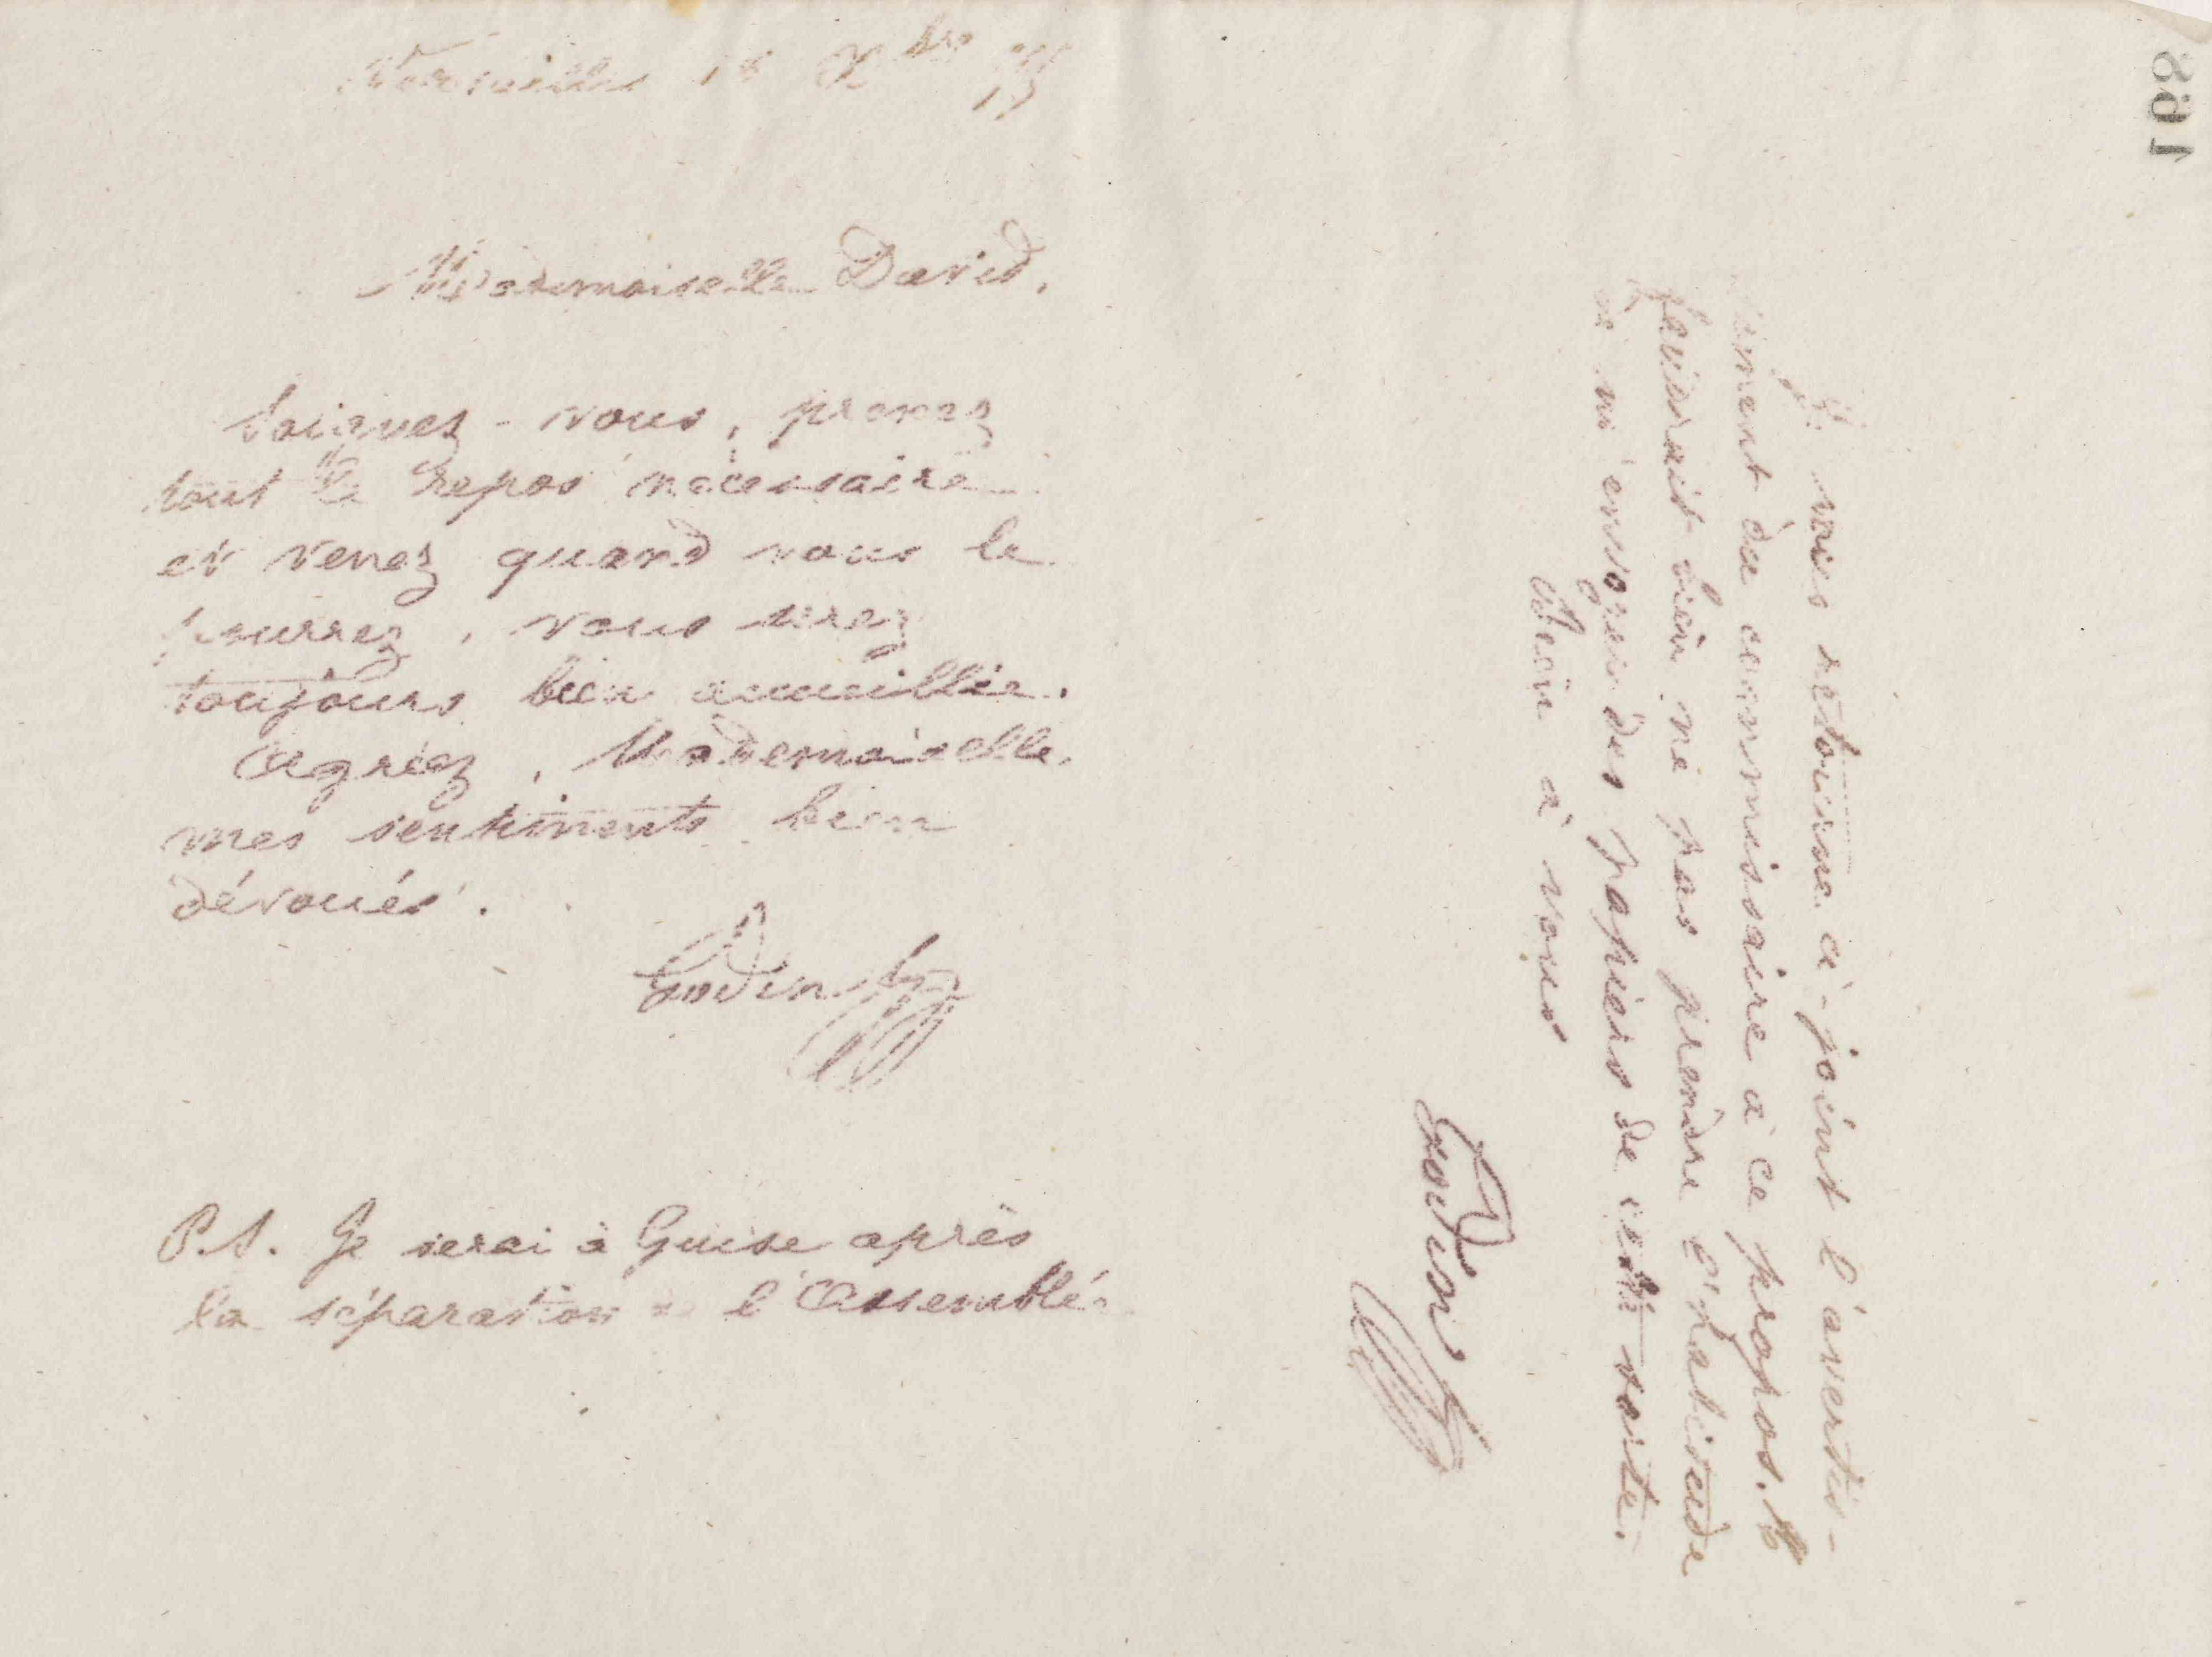 Versailles 18 Xbre
Mademoiselle David,
Soignez-vous, prenez
tout le repos nécessaire
et venez quand vous le
pourrez, vous serez
toujours bien accueillie.
Agréez, Mademoiselle,
mes sentiments bien
dévoués.
Godin
P.S. Je serai à Guise après
la séparation de l'Assemblée
Je vous retourne ci-joint l'avertis-
sement du commissaire à ce propos. Il
faudrait bien ne pas prendre l'habitude
de m'envoyer des papiers de cette sorte.
Bien à vous
Godin
861